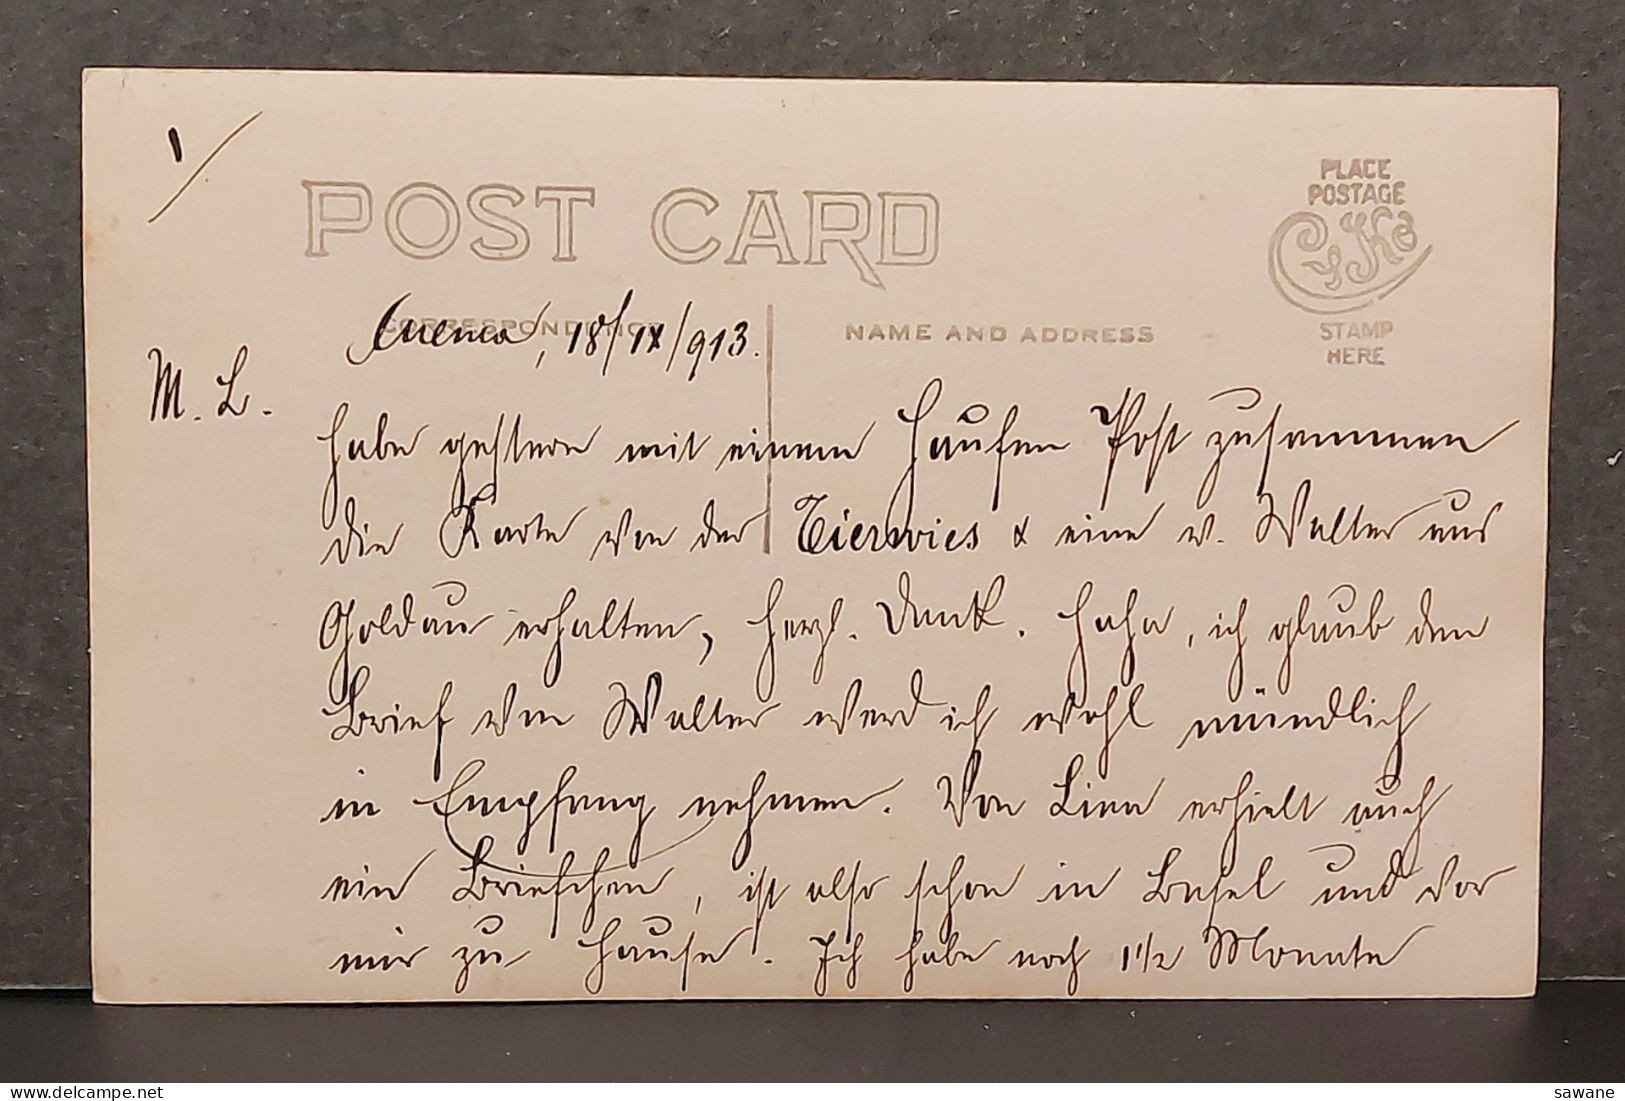 1/
POST CARD
PLACE
POSTAGE
STAMP
HERE
CORRESPONDENCE
NAME AND ADDRESS
Cuenca, 18/IX/913.
M. L.
habe gestern mit einem Haufen Post zusammen
die Karte von der Tierwies & eine v. Walter aus
Goldau erhalten, herzl. Dank. Haha, ich glaub den
Brief von Walter werd ich wohl mündlich
in Empfang nehmen. Von Lina erhielt auch
ein Briefchen, ist also schon in Basel und vor
mir zu Hause. Ich habe noch 1½ Monate
sawane